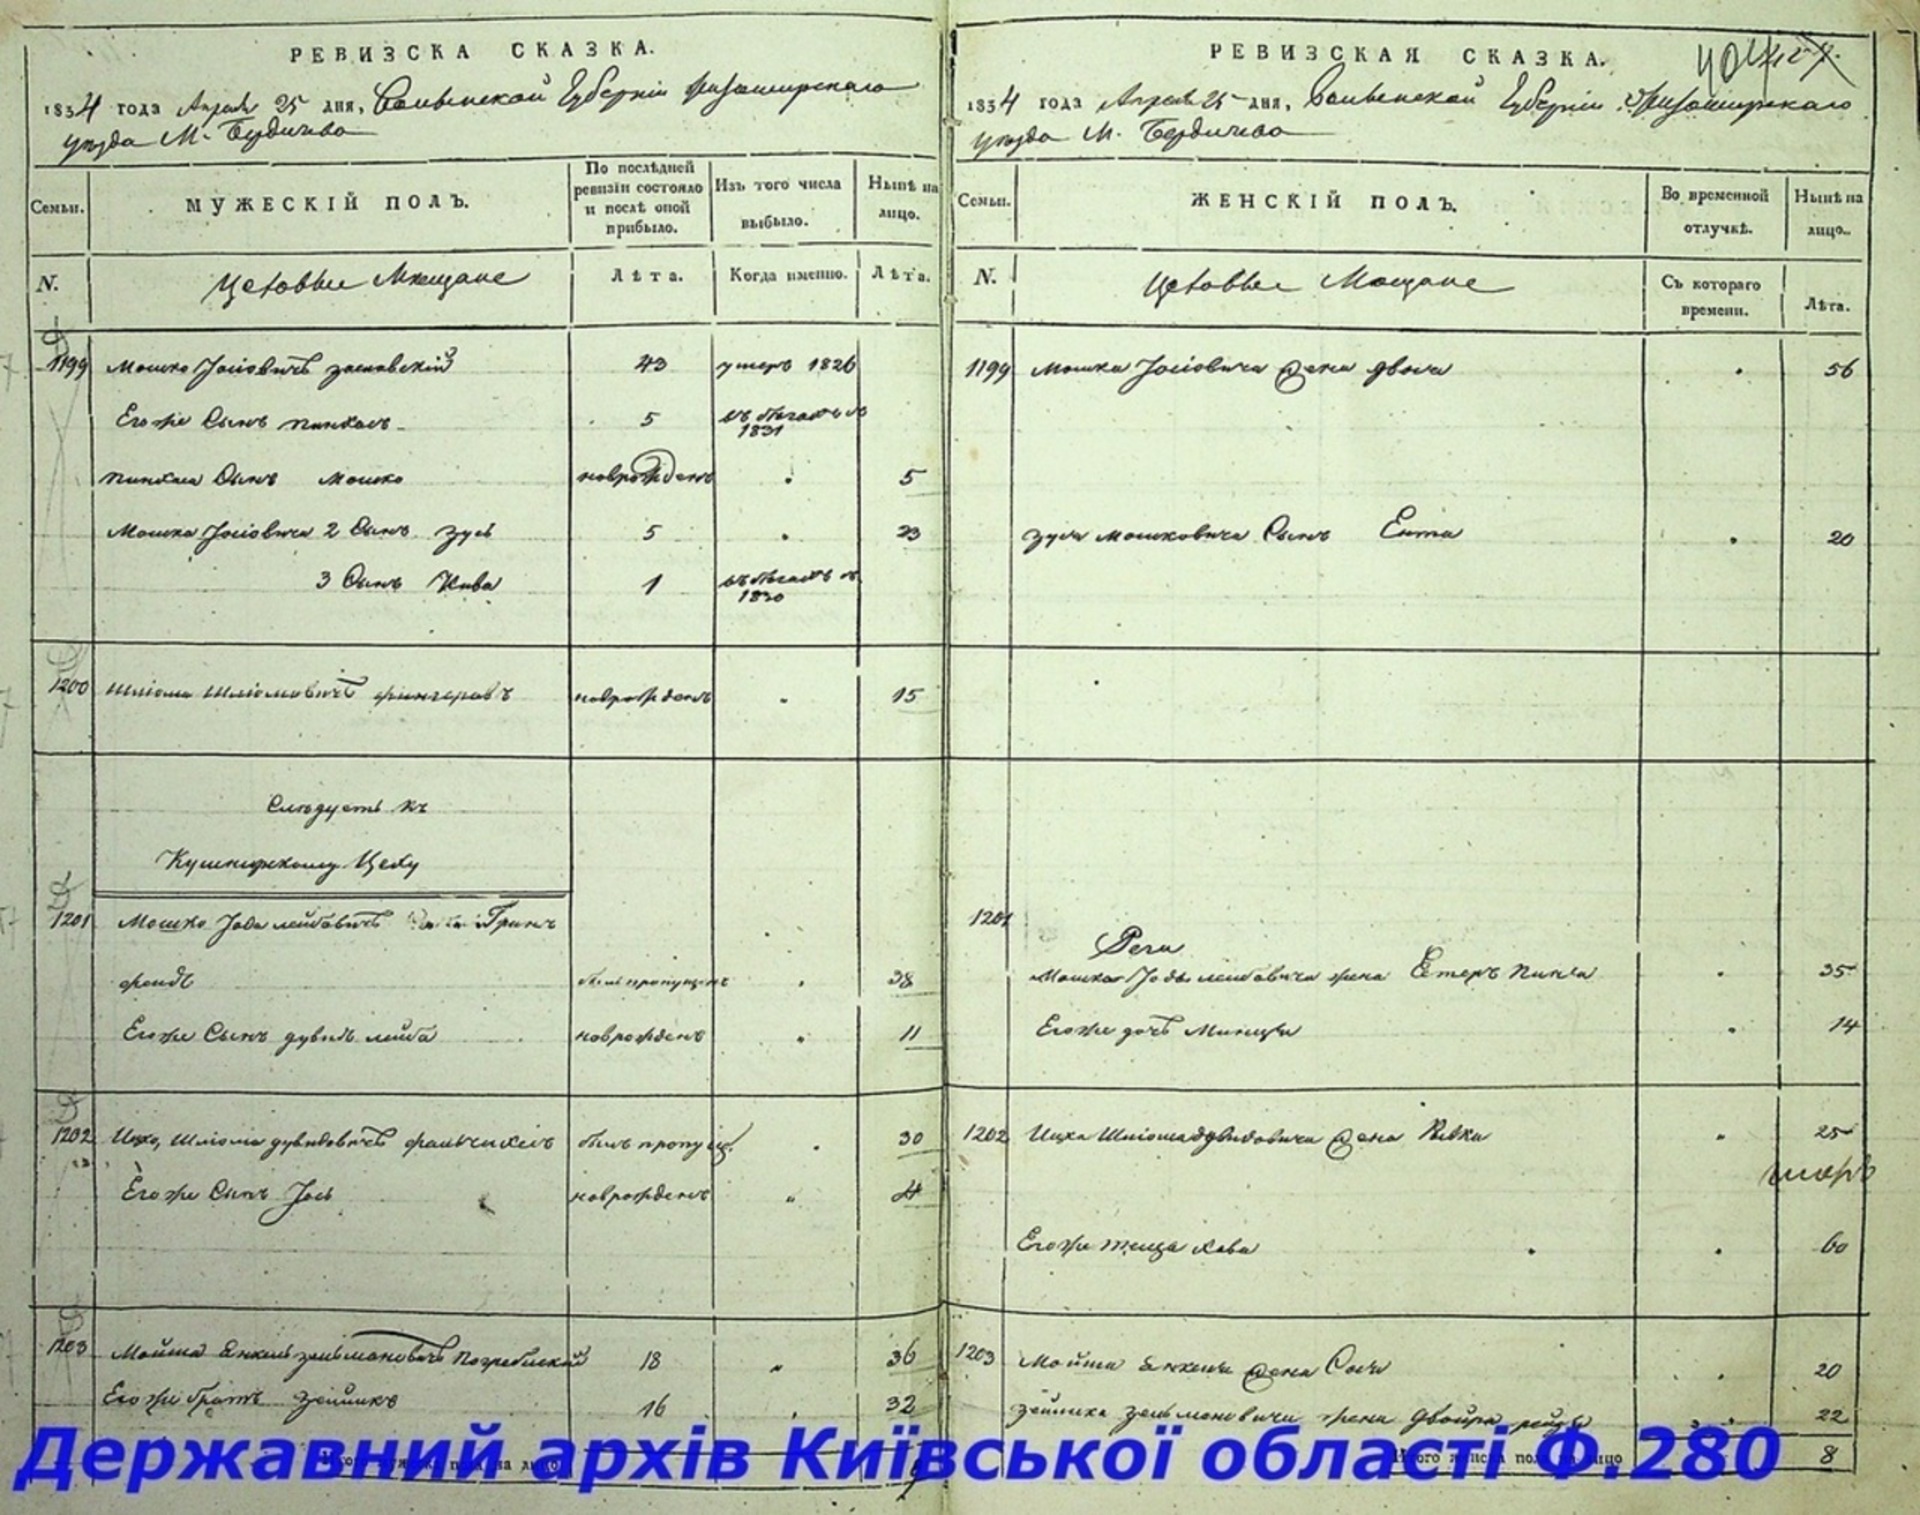 РЕВИЗСКА СКАЗКА.
1834 года Апреля 25 дня, Волынской Губерніи Житомирскаго
уезда М. Бердичева
Семьи.
МУЖЕСКІЙ ПОЛЪ.
По послѣдней ревизіи состояло и послѣ оной прибыло.
Изъ того числа выбыло.
Нынѣ на лицо.
N.
Цеховые Мещане
Лѣта.
Когда именно.
Лѣта.
1199 Мошко Іосіовичъ 43 умеръ 1826
Егоже Сынъ пинхасъ 5 въ бегахъ съ 1831
пинхаса Сынъ Мошко новрожденъ 5
Мошка Іосіовича 2 Сынъ зусь 5 23
3 Сынъ Кива 1 въ бегахъ съ 1830
1200 Шліома Шліомовичъ новрожденъ 15
Следуетъ къ
Кушнирскому Цеху
1201 Мошко Іода лейбовичъ Грин
фендъ былъ пропущенъ 38
Егоже Сынъ дувидъ лейба новрожденъ 11
1202 Ицхо, Шліома дувидовичъ былъ пропущ. 30
Егоже Сынъ Іось новрожденъ 4
1203 Мойша Енкель зельмановичъ Погребиский 18 36
Егоже братъ зейликъ 16 32
РЕВИЗСКАЯ СКАЗКА.
1834 года Апреля 25 дня, Волынской Губерніи Житомирскаго
уезда М. Бердичева
Семьи.
ЖЕНСКІЙ ПОЛЪ.
Во временной отлучкѣ.
Нынѣ на лицо.
N.
Цеховые Мещане
Съ котораго времени.
Лѣта.
1199 Мошка Іосіовича Жена двося 56
зуся мошковича Сынъ Ента 20
1201
Мошка Іоды лейбовича жена Естеръ 35
Егоже дочь Минця 14
1202 Ицха Шліома дувидовича Жена Ривка 25
Егоже теща хава 60
1203 Мойши Енкеля Жена Сося 20
зейлика зельмановича жена двойра рейзя 22
Итого женска полу на лицо 8
Державний архів Київської області Ф.280